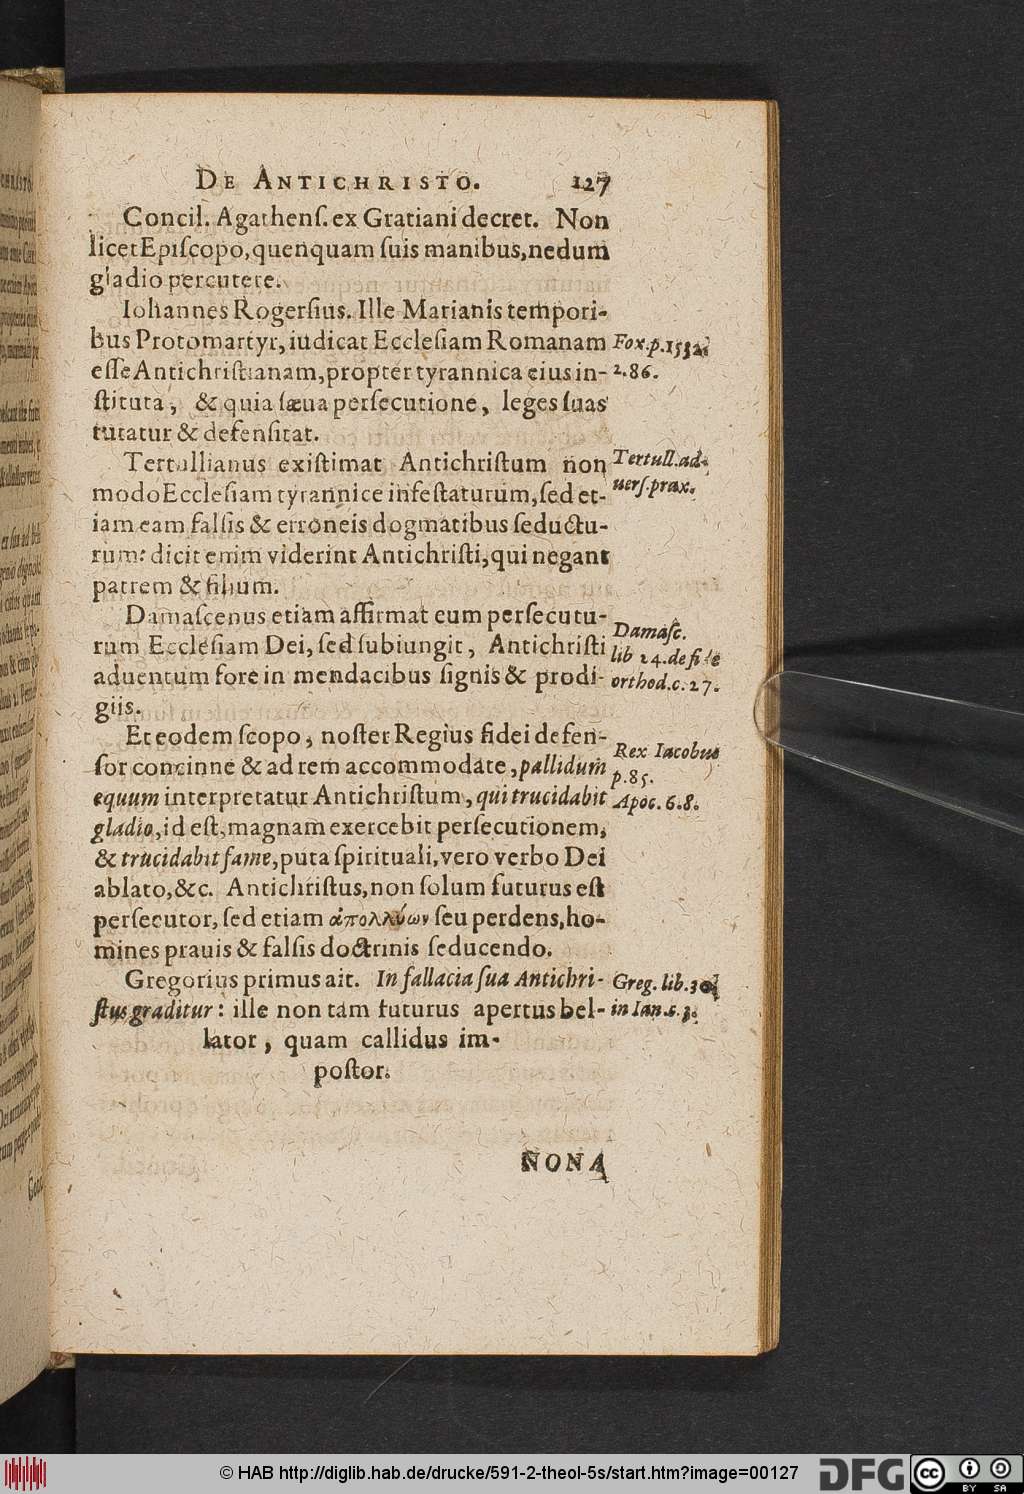 DE ANTICHRISTO. 127
Concil. Agathenſ. ex Gratiani decret. Non
licet Epiſcopo, quenquam ſuis manibus, nedum
gladio percutere.
Iohannes Rogerſius. Ille Marianis tempori-
bus Protomartyr, iudicat Eccleſiam Romanam
eſſe Antichriſtianam, propter tyrannica eius in-
ſtituta, & quia ſæua perſecutione, leges ſuas
tutatur & defenſitat.
Fox. p. 1532.
2.86.
Tertullianus exiſtimat Antichriſtum non
modo Eccleſiam tyrannice infeſtaturum, ſed et-
iam eam falſis & erroneis dogmatibus ſeductu-
rum: dicit enim viderint Antichriſti, qui negant
patrem & filium.
Tertull. ad-
uerſ. prax.
Damaſcenus etiam affirmat eum perſecutu-
rum Eccleſiam Dei, ſed ſubiungit, Antichriſti
aduentum fore in mendacibus ſignis & prodi-
giis.
Damaſc.
lib 24. de fide
orthod. c. 27.
Et eodem ſcopo, noſter Regius fidei defen-
ſor concinne & ad rem accommodate, pallidum
equum interpretatur Antichriſtum, qui trucidabit
gladio, id eſt, magnam exercebit perſecutionem,
& trucidabit fame, puta ſpirituali, vero verbo Dei
ablato, &c. Antichriſtus, non ſolum futurus eſt
perſecutor, ſed etiam ἀπολλύων ſeu perdens, ho-
mines prauis & falſis doctrinis ſeducendo.
Rex Iacobus
p. 85.
Apoc. 6.8.
Gregorius primus ait. In fallacia ſua Antichri-
ſtus graditur: ille non tam futurus apertus bel-
lator, quam callidus im-
poſtor.
Greg. lib. 30
in Ian. c. 3.
NONA
© HAB http://diglib.hab.de/drucke/591-2-theol-5s/start.htm?image=00127
DFG
cc BY SA